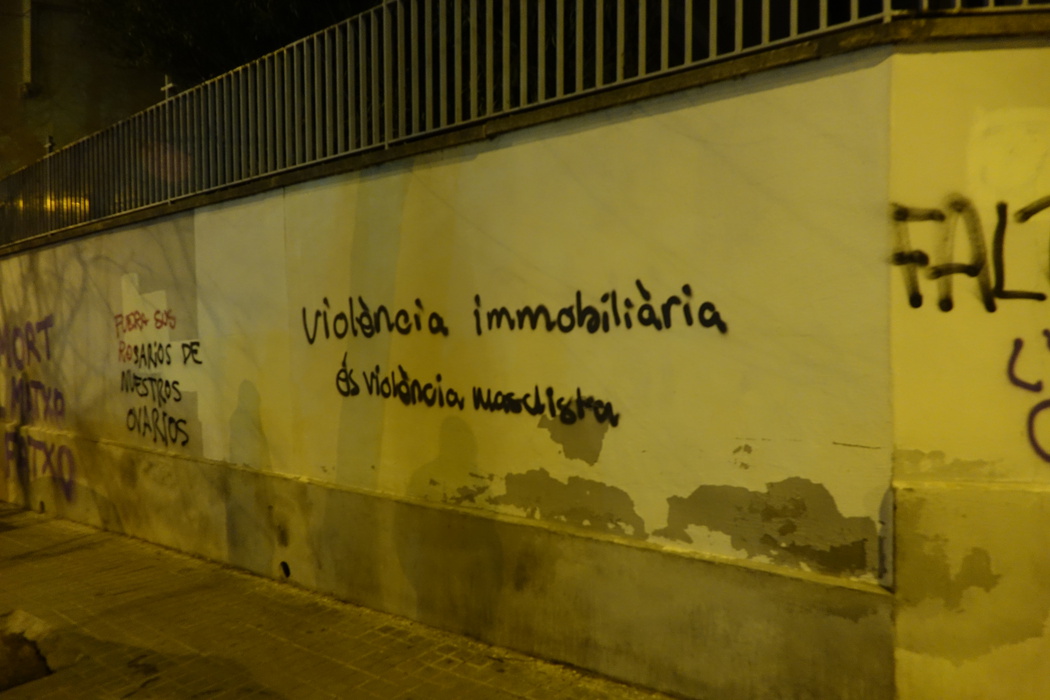 MORT
MATXO
FATXO
FUERA SUS
ROSARIOS DE
NUESTROS
OVARIOS
violència immobiliària
és violència masclista
FALT